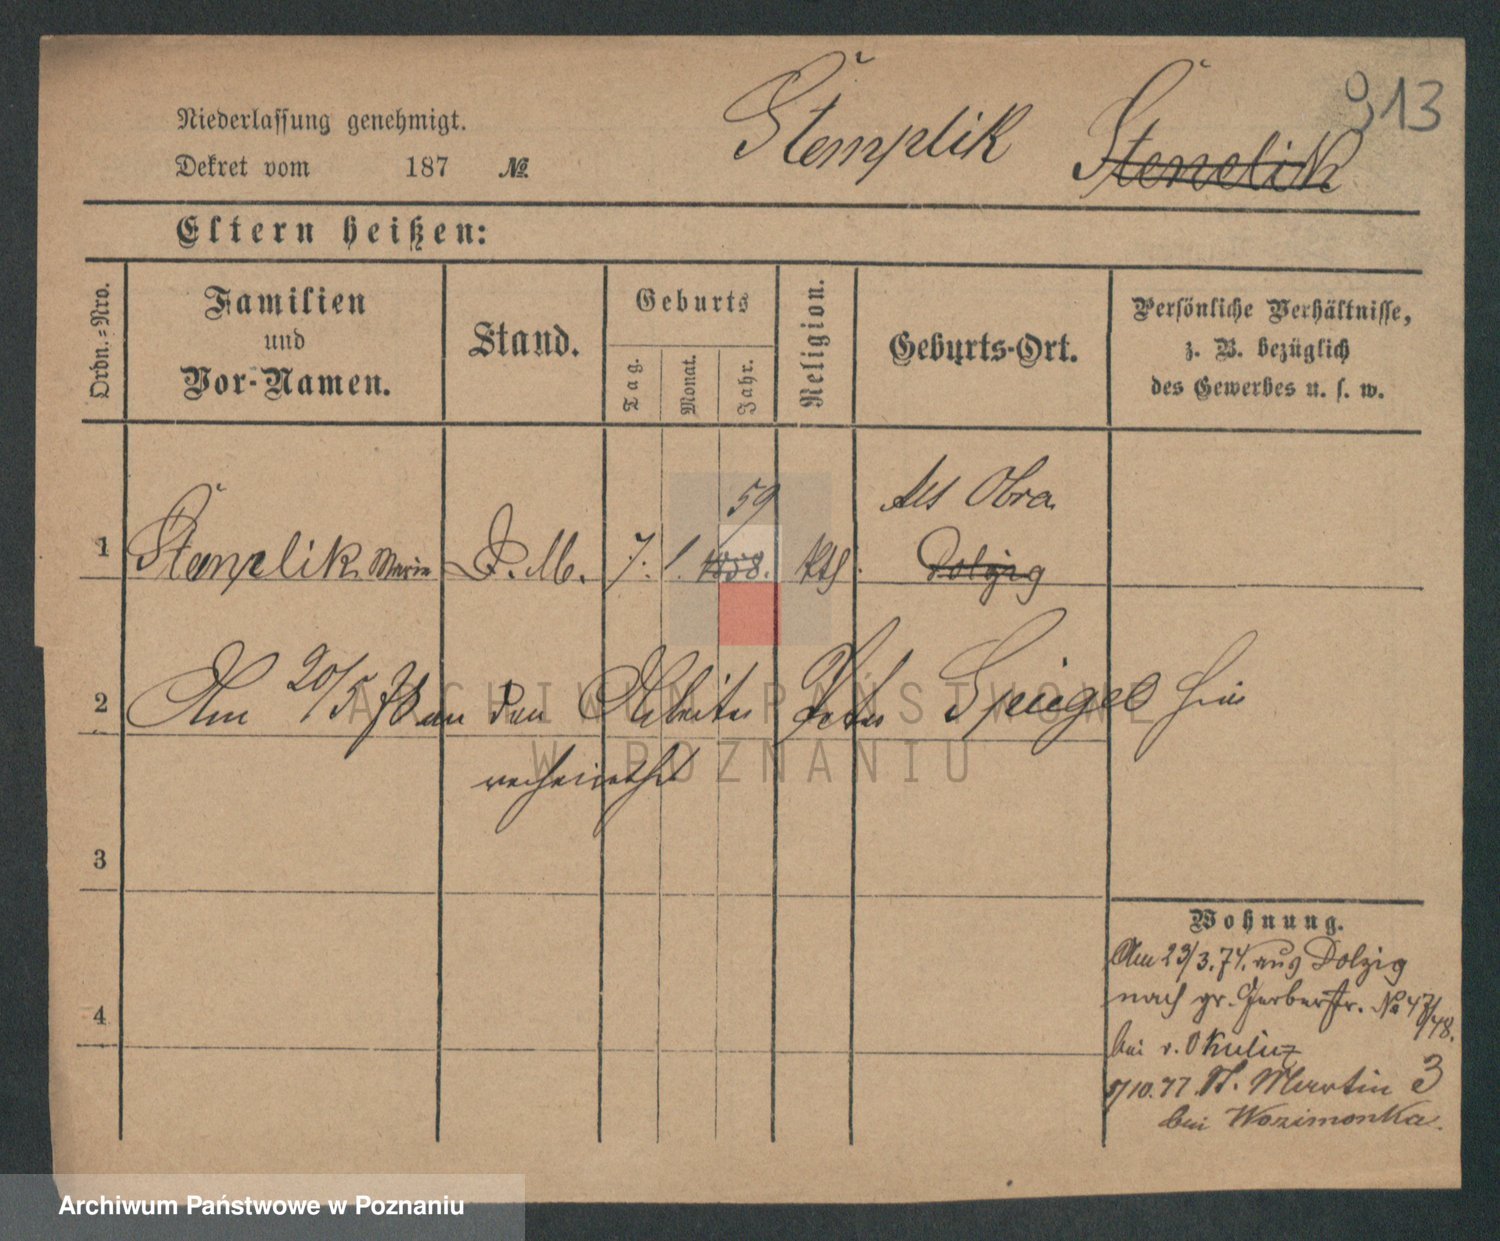 913
Niederlassung genehmigt.
Stemplik Stenclik
Dekret vom 187 №
Eltern heißen:
Ordn.=Nro.
Familien
und
Vor-Namen.
Stand.
Geburts
Tag.
Monat.
Jahr.
Religion.
Geburts-Ort.
Persönliche Verhältnisse,
z. B. bezüglich
des Gewerbes u. s. w.
59
Alt Obra
1 Stemplik Marie D. M. 7. 1. 1858. kth. Dolzig
2 Am 20/5 78 an den Arbeiter Peter Spiegel hier
verheirathet
3
4
Wohnung.
Am 23/3. 74. aus Dolzig
nach gr. Gerberstr. No 47/48.
bei v. Okulicz
9/10. 77. St. Martin 3
bei Wozimonka.
ARCHIWUM PAŃSTWOWE
W POZNANIU
Archiwum Państwowe w Poznaniu